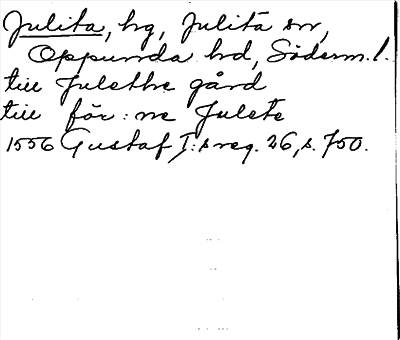 Julita, hg, Julita sn,
Oppunda hd, Söderm. l.
till Julethe gård
till för: ne Julete
1556 Gustaf I:s reg. 26, s. 750.